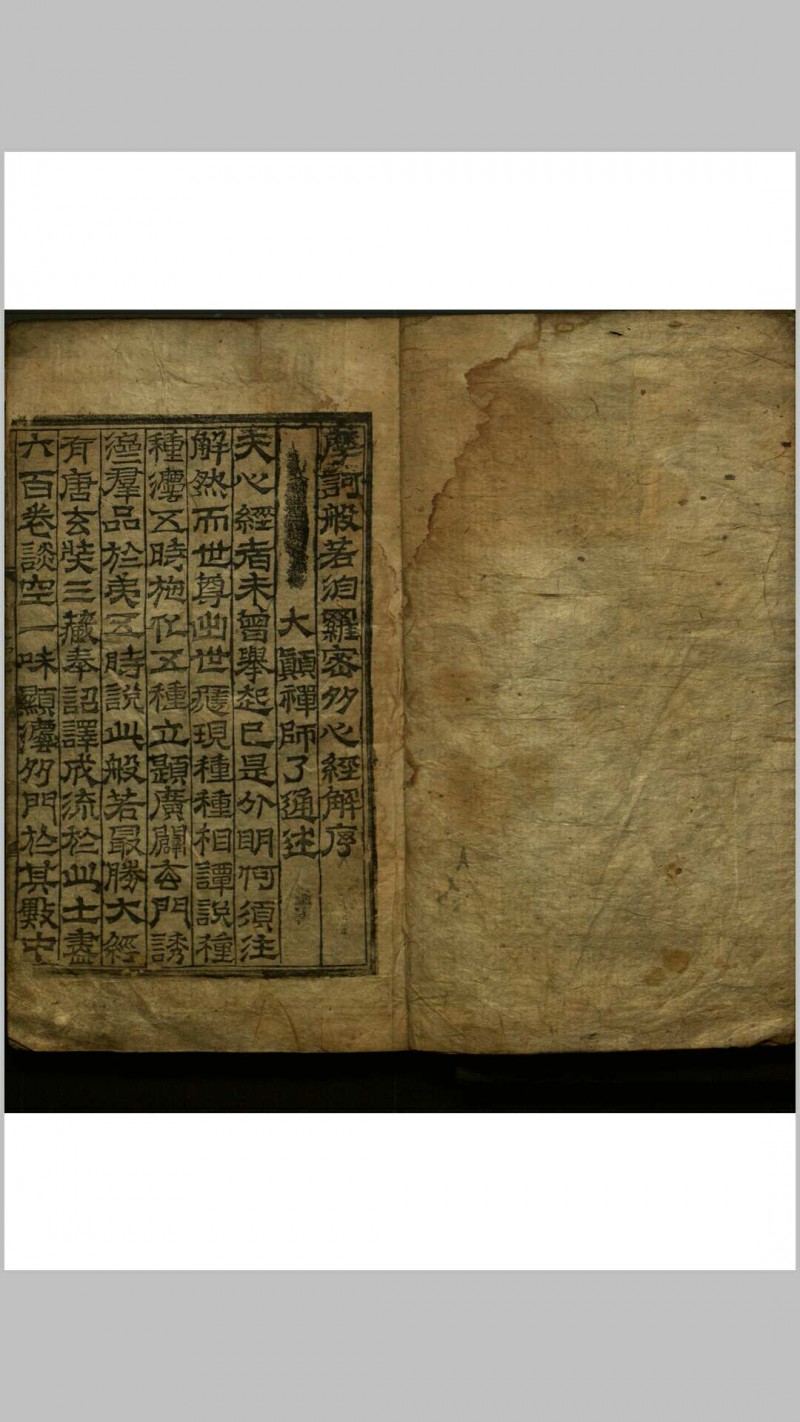 摩訶般若洎羅密多心經解序
大顚禪師了通述
夫心經者未曾擧起已是分明何須注
解然而世尊出世應現種種相譚說種
種灋五時施化五種立題廣闢玄門誘
羣品於第五時說此般若最勝大經
有唐玄奘三藏奉詔譯成流於此土盡
六百卷談空一味顯灋多門於其數中